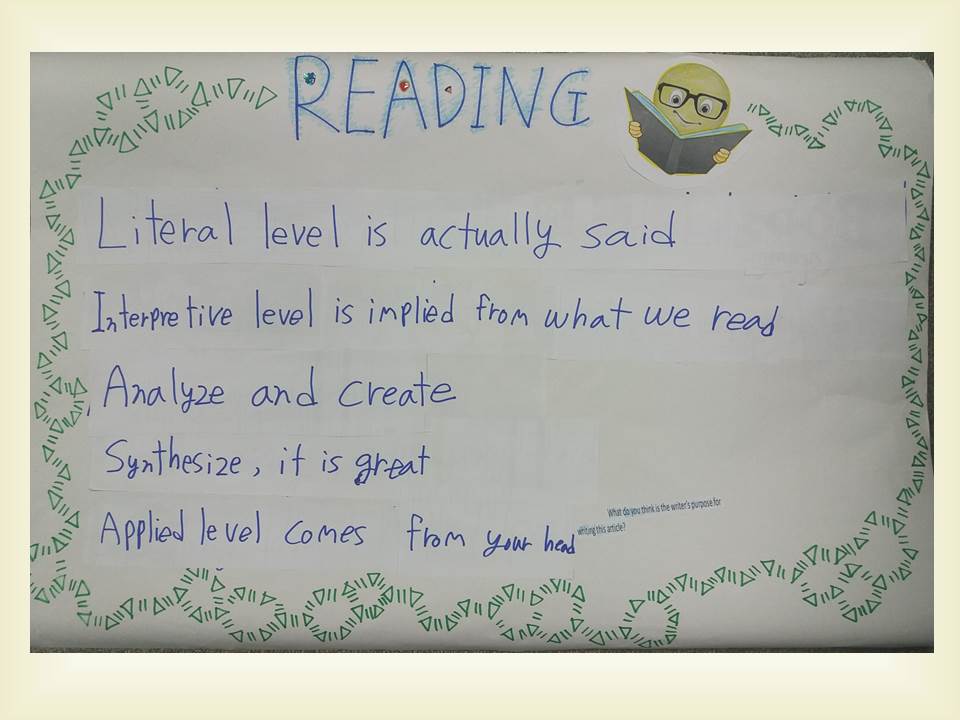 READING
Literal level is actually said
Interpretive level is implied from what we read
Analyze and create
Synthesize, it is great
Applied level comes from your head
What do you think is the writer's purpose for
writing this article?